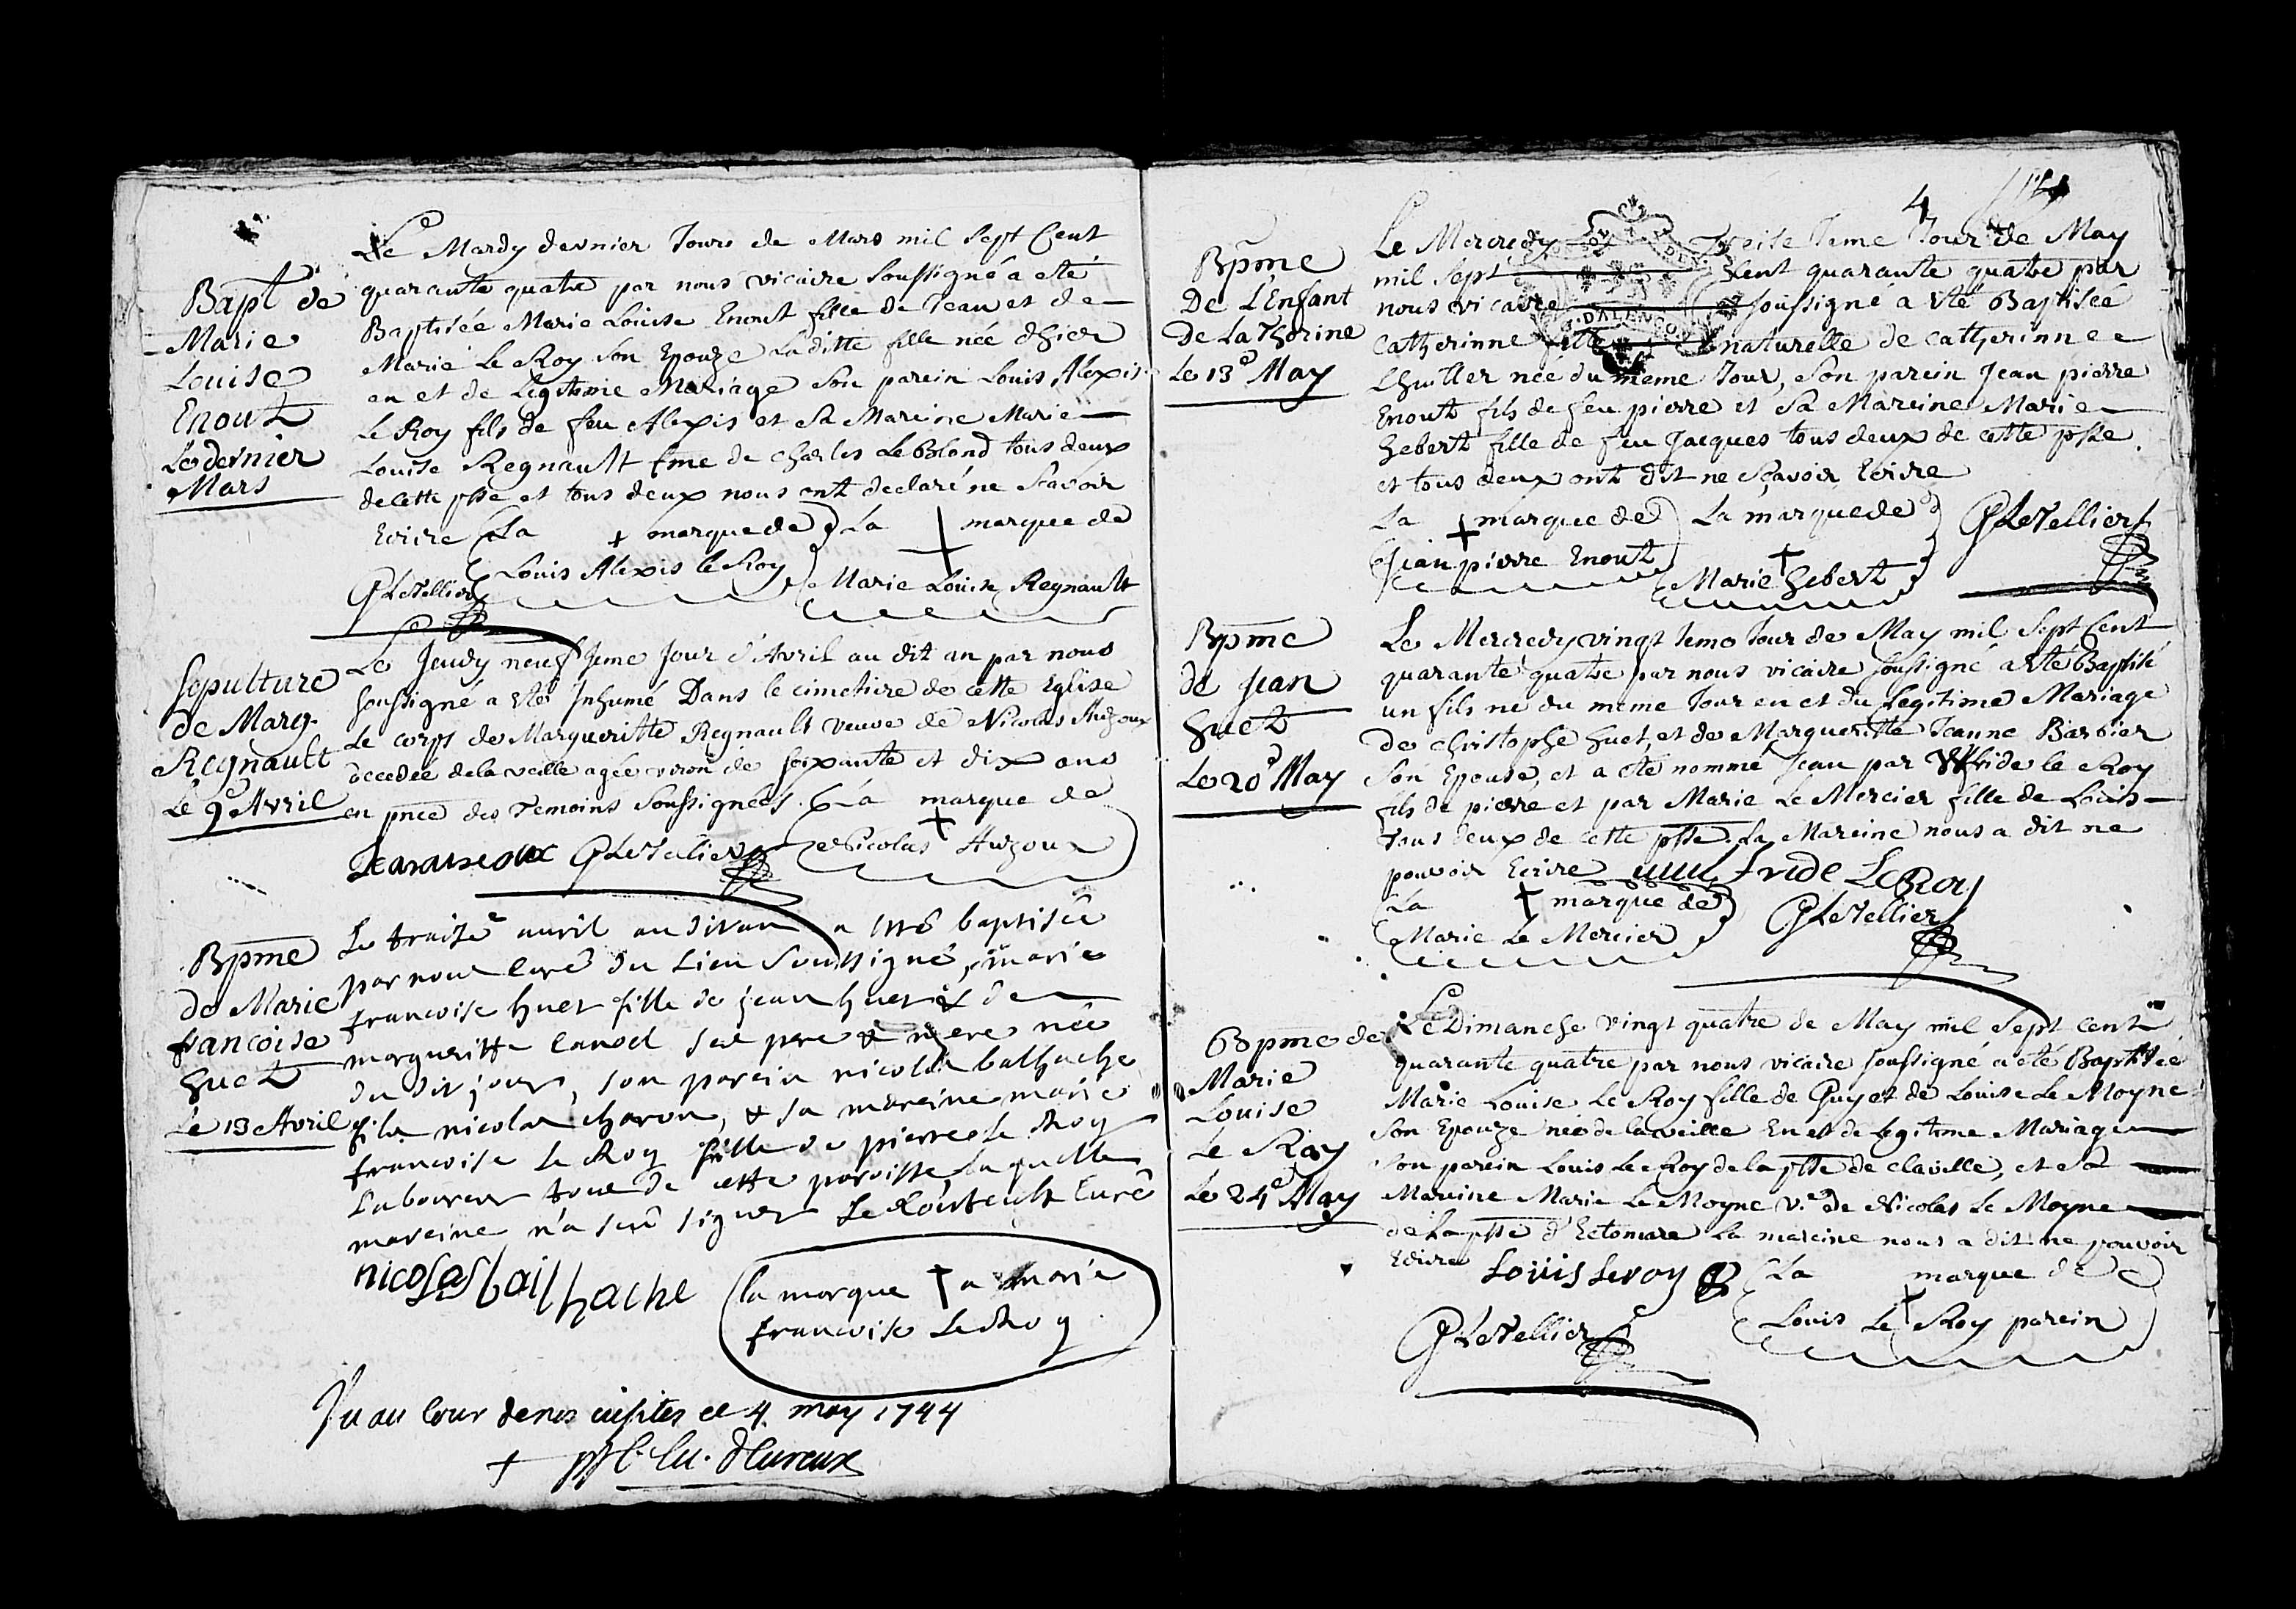 Bapt de
Marie
Louise
Enout
Le dernier
Mars
Le Mardy dernier Jours de Mars mil Sept Cent
quarante quatre par nous vicaire Soussigné a eté
Baptisée Marie Louise Enout fille de Jean et de
Marie Le Roy Son Epouze La ditte fille née d'hier
en et de Legitime Mariage Son parein Louis Alexis
Le Roy fils de feu Alexis et Sa Mareine Marie
Louise Regnault fme de Charles Le Blond tous deux
de cette psse et tous deux nous ont declaré ne Scavoir
Ecrire La + marque de La + marque de
Louis Alexis le Roy Marie Louise Regnault
G LeTellier
Sepulture
de Marg.
Regnault
Le 9e Avril
Le Jeudy neuf Jeme Jour d'Avril au dit an par nous
soussigné a eté Inhumé Dans le cimetiere de cette Eglise
Le corps de Margueritte Regnault veuve de Nicolas Auzoux
decedée de la veille agée viron de soixante et dix ans
en pnce des Temoins Soussignées. La marque de
+
G LeTellier Nicolas Auzoux
Bpme
de Marie
francoise
huet
Le 13 Avril
Le traise avril au dit an a etté baptisée
par nous Curé du Lieu Soussigné, marie
francoise huet fille de jean huet et de
margueritte Canoel ses pere & mere née
du dit jour, son parein nicolas balhache
fils nicolas charon, & sa mareine marie
francoise le Roy fille de pierre le Roy
Laboureur tous de cette paroisse, laquelle
mareine n'a sceu signer Curé
nicolas bailhache
la marque + a marie
francoise Le Roy
Vu au Cour de nos visites ce 4 may 1744
+
4
Bpme
De L'Enfant
De Catherine
Le 13e May
Le Mercredy Treise Ieme Jour de May
mil Sept Cent quarante quatre par
nous vicaire soussigné a eté Baptisée
Catherinne fille naturelle de Catherinne
Lhuiller née du meme Jour, Son parein Jean pierre
Enout fils de feu pierre et Sa Mareine Marie
hebert fille de feu Jacques tous deux de cette psse
et tous deux ont dit ne Sçavoir Ecrire
La + marque de La marque de G LeTellier
Jean pierre Enout + Marie hebert
D'ALENÇON
Bpme
de Jean
huet
Le 20e May
Le Mercredy vingt Ieme Jour de May mil Sept Cent
quarante quatre par nous vicaire soussigné a eté Baptisé
un fils né du meme Jour en et du Legitime Mariage
de Christophe huet, et de Margueritte Jeanne Barbier
Son Epouse, et a eté nommé Jean par le Roy
fils de pierre et par Marie Le Mercier fille de Louis
tous deux de cette psse. La Mareine nous a dit ne
pouvoir Ecrire Le Roy
La + marque de
Marie Le Mercier G LeTellier
Bpme de
Marie
Louise
Le Roy
Le 24e May
Le Dimanche vingt quatre de May mil Sept Cent
quarante quatre par nous vicaire soussigné a eté Baptisée
Marie Louise Le Roy fille de Guy et de Louise Le Moyne
Son Epouze née de la veille En et de Legitime Mariage
Son parein Louis Le Roy de la psse de Claville, et Sa
Mareine Marie Le Moyne Ve de Nicolas Le Moyne
de La psse d'Ectomare La mareine nous a dit ne pouvoir
Ecrire Louis Leroy La marque de
+
Louis Le Roy parein
G LeTellier